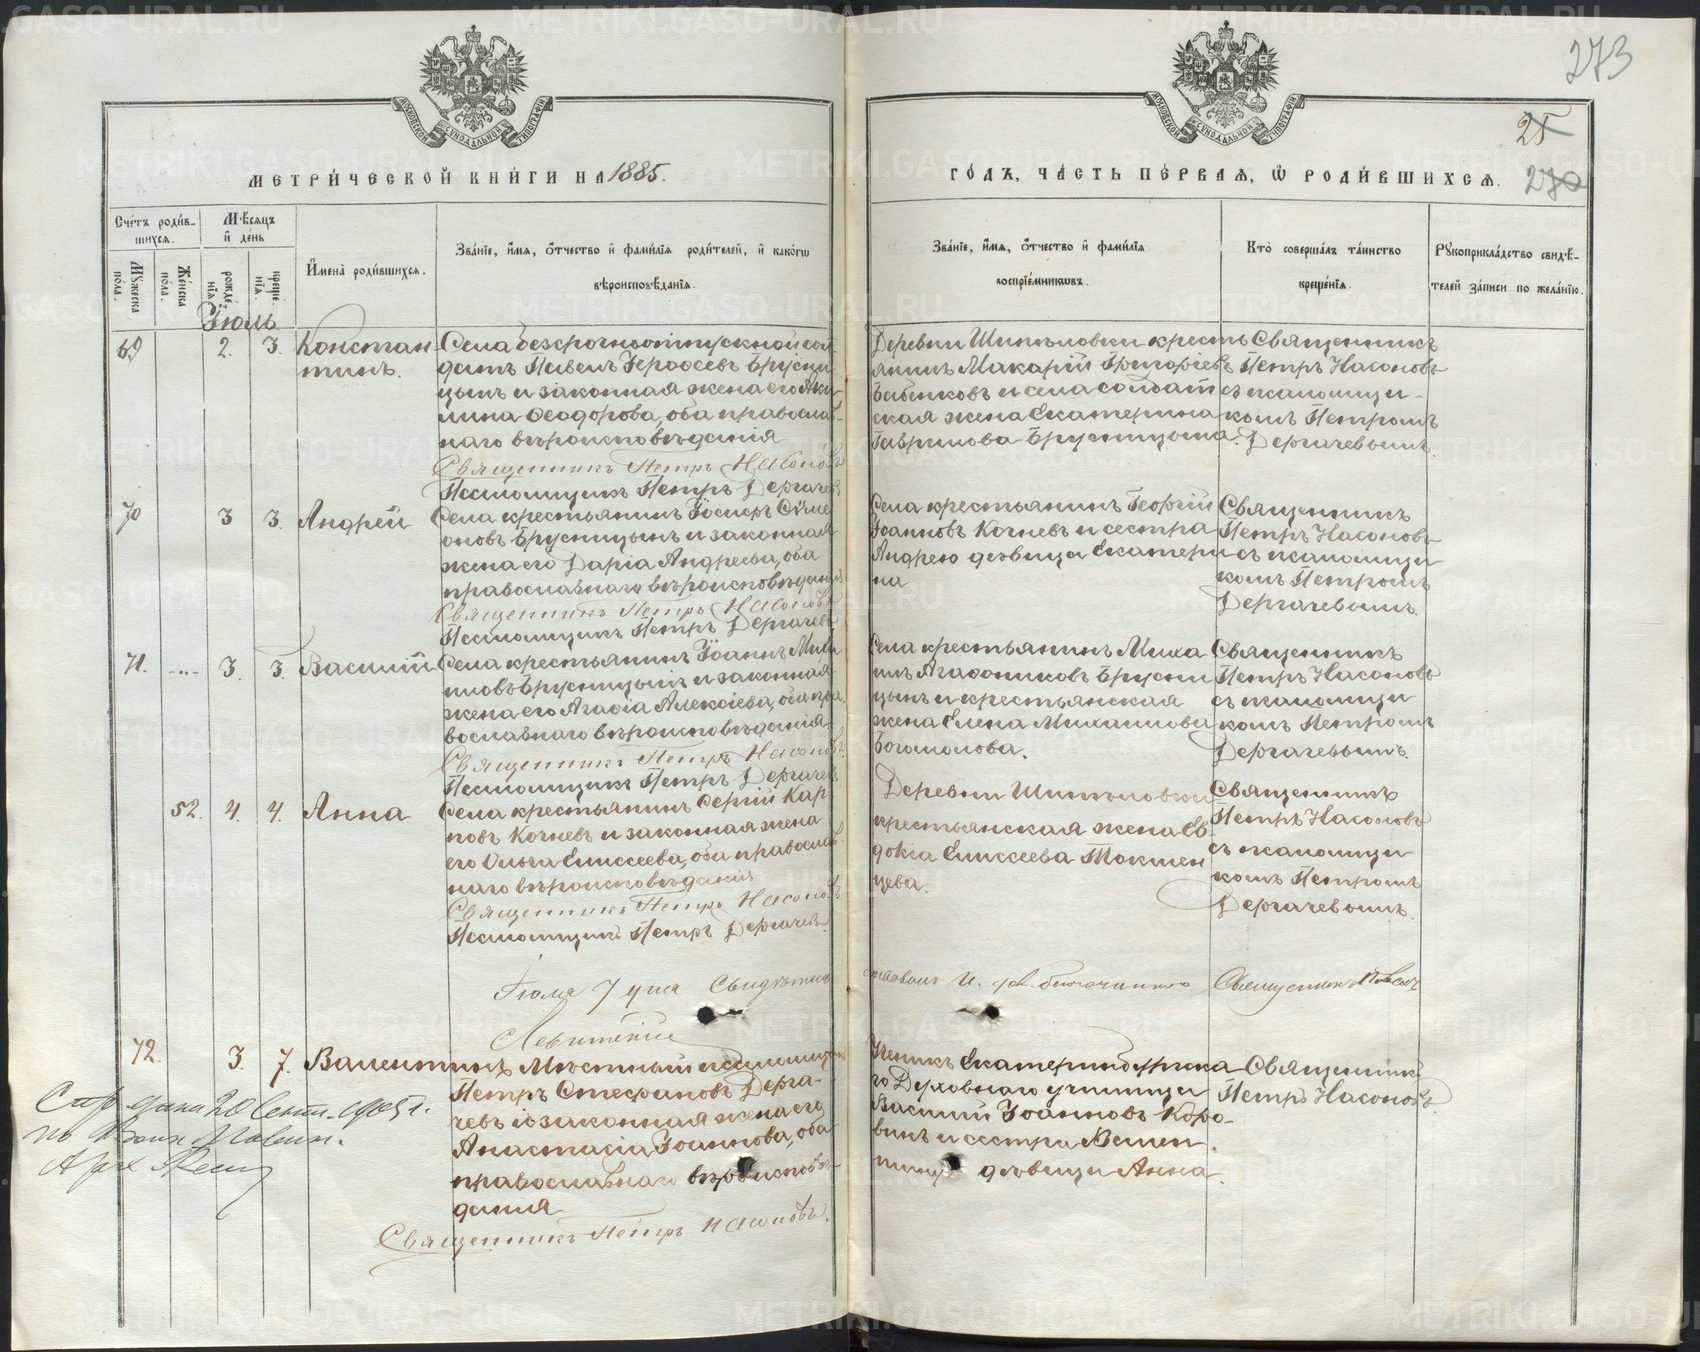 273
25
270
МЕТРИ́ЧЕСКОЙ КНИ́ГИ НА 1885.
ГО́ДЪ, ЧА́СТЬ ПЕ́РВАЯ, Ѡ РОДИ́ВШИХСЯ.
Сче́тъ роди́в-
шихся.
Мѣ́сяцъ
и де́нь
Мꙋ́жеска
по́ла.
Же́нска
по́ла.
рожде́-
нїя
креще́-
нїя.
Имена̀ роди́вшихся.
Зва́нїе, и́мя, о́тчество и фами́лїя роди́телей, и како́гѡ
вѣроисповѣ́данїя.
Зва́нїе, и́мя, о́тчество и фами́лїя
воспрїе́мникѡвъ.
Кто̀ соверша́лъ та́инство
креще́нїя.
Рꙋкоприкла́дство свидѣ́-
телей за́писи по жела́нїю.
Іюль
69 2. 3. Констан
тинъ.
Села безсрочноотпускной сол
датъ Павелъ Іероѳеевъ Брусни
цынъ и законная жена его Аку
лина Ѳеодорова, оба православ-
наго вѣроисповѣданія
Священникъ Петръ Насоновъ
Псаломщикъ Петръ Дергачевъ
Деревни Шипѣловки кресть
янинъ Макарій Григорьевъ
Бабенковъ и села солдат
ская жена Екатерина
Гаврилова Брусницына.
Священникъ
Петръ Насоновъ
съ псаломщи-
комъ Петромъ
Дергачевымъ.
70 3 3. Андрей
Села крестьянинъ Іосифъ Сѵме
оновъ Брусницынъ и законная
жена его Дарія Андреева, оба
православнаго вѣроисповѣданія
Священникъ Петръ Насоновъ
Псаломщикъ Петръ Дергачевъ
Села крестьянинъ Георгій
Іоанновъ Кочневъ и сестра
Андрею дѣвица Екатери
на
Священникъ
Петръ Насоновъ
съ псаломщи
комъ Петромъ
Дергачевымъ.
71. -"- 3. 3. Василій
Села крестьянинъ Іоаннъ Миха
иловъ Брусницынъ и законная
жена его Агафія Алексіева, оба пра
вославнаго вѣроисповѣданія
Священникъ Петръ Насоновъ
Псаломщикъ Петръ Дергачевъ
Села крестьянинъ Миха
илъ Агафониковъ Брусни
цынъ и крестьянская
жена Елена Михаилова
Богомолова.
Священникъ
Петръ Насоновъ
съ псаломщи
комъ Петромъ
Дергачевымъ.
52. 4. 4. Анна
Села крестьянинъ Сергій Кар
повъ Кочневъ и законная жена
его Ольга Елиссеева, оба православ-
наго вѣроисповѣданія
Священникъ Петръ Насоновъ
Псаломщикъ Петръ Дергачевъ.
Деревни Шипѣловки
крестьянская жена Ев-
докія Елиссеева Токмен
цева.
Священникъ
Петръ Насоновъ
съ псаломщи
комъ Петромъ
Дергачевымъ.
Іюля 7 дня Свидѣтель
ствовалъ И. д. благочиннаго Священникъ
Левитскій
72. 3. 7. Валентинъ
Мѣстный псаломщикъ
Петръ Стефановъ Дерга-
чевъ и законная жена его
Анастасія Іоаннова, оба
православнаго вѣроисповѣ-
данія
Священникъ Петръ Насоновъ.
Ученикъ Екатеринбургска
го Духовнаго училища
Василій Іоанновъ Коро-
винъ и сестра Вален
тину дѣвица Анна.
Священникъ
Петръ Насоновъ.
дана 20 Сент. 1905 г.
по